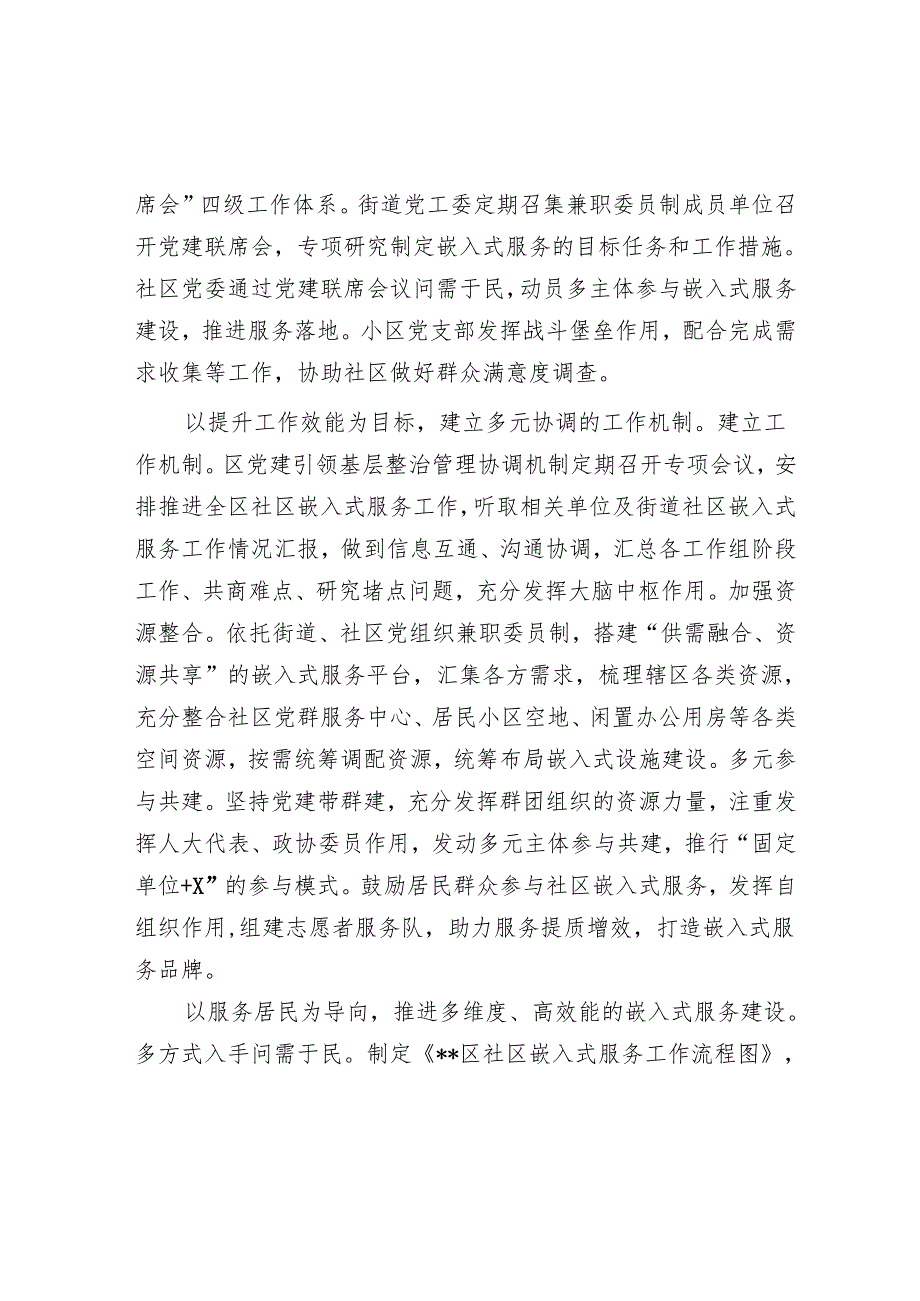 席会”四级工作体系。街道党工委定期召集兼职委员制成员单位召
开党建联席会，专项研究制定嵌入式服务的目标任务和工作措施。
社区党委通过党建联席会议问需于民,动员多主体参与嵌入式服务
建设，推进服务落地。小区党支部发挥战斗堡垒作用，配合完成需
求收集等工作，协助社区做好群众满意度调查。
以提升工作效能为目标，建立多元协调的工作机制。建立工
作机制。区党建引领基层整治管理协调机制定期召开专项会议，安
排推进全区社区嵌入式服务工作，听取相关单位及街道社区嵌入式
服务工作情况汇报，做到信息互通、沟通协调，汇总各工作组阶段
工作、共商难点、研究堵点问题，充分发挥大脑中枢作用。加强资
源整合。依托街道、社区党组织兼职委员制，搭建“供需融合、资
源共享”的嵌入式服务平台，汇集各方需求，梳理辖区各类资源，
充分整合社区党群服务中心、居民小区空地、闲置办公用房等各类
空间资源，按需统筹调配资源，统筹布局嵌入式设施建设。多元参
与共建。坚持党建带群建，充分发挥群团组织的资源力量，注重发
挥人大代表、政协委员作用，发动多元主体参与共建，推行“固定
单位+X”的参与模式。鼓励居民群众参与社区嵌入式服务，发挥自
组织作用,组建志愿者服务队，助力服务提质增效，打造嵌入式服
务品牌。
以服务居民为导向，推进多维度、高效能的嵌入式服务建设。
多方式入手问需于民。制定《**区社区嵌入式服务工作流程图》，